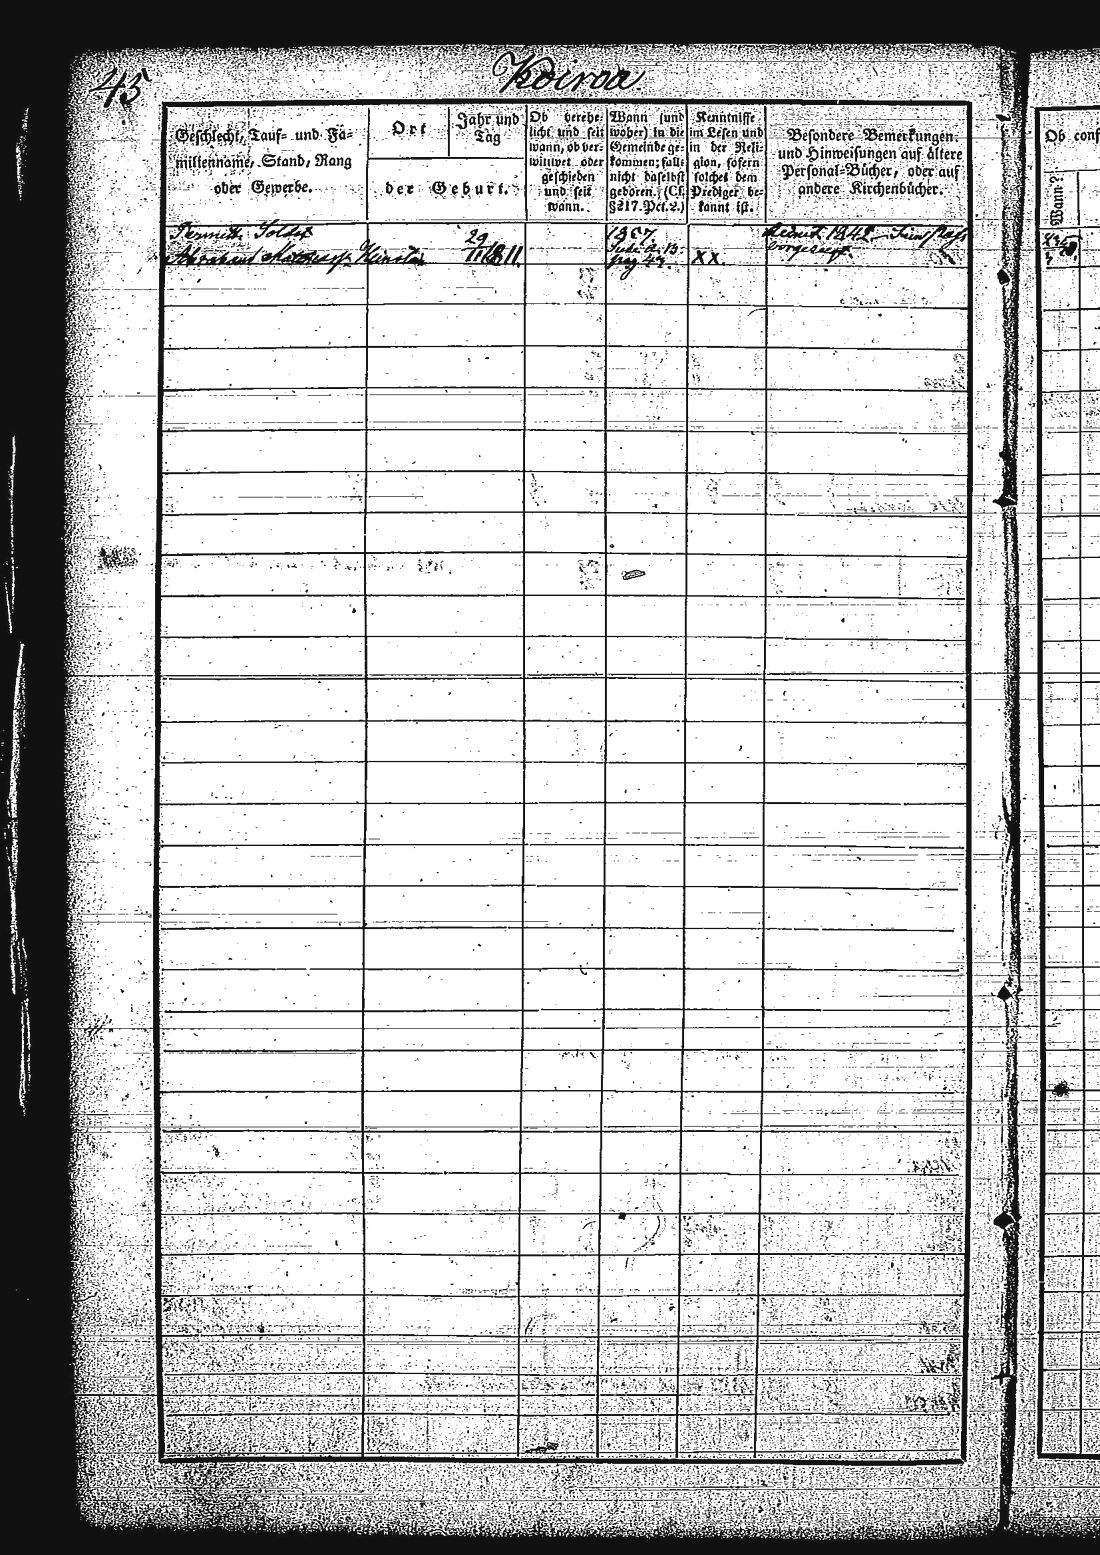 45
Koiraa
Geschlecht, Tauf- und Fa-
milienname, Stand, Rang
oder Gewerbe.
Ort
Jahr und
Tag
der Geburt.
Ob verehe-
licht und seit
wann, ob ver-
wittwet oder
geschieden
und seit
wann.
Wann (und
woher) in die
Gemeinde ge-
kommen; falls
nicht daselbst
geboren. (Cf.
§ 217. Pct. 2.)
Kenntnisse
im Lesen und
in der Reli-
gion, sofern
solches dem
Prediger be-
kannt ist.
Besondere Bemerkungen
und Hinweisungen auf ältere
Personal-Bücher, oder auf
andere Kirchenbücher.
Ob conf
Wann?
Permitt. Soldat
29
1857
1811.
pag 43.
XX.